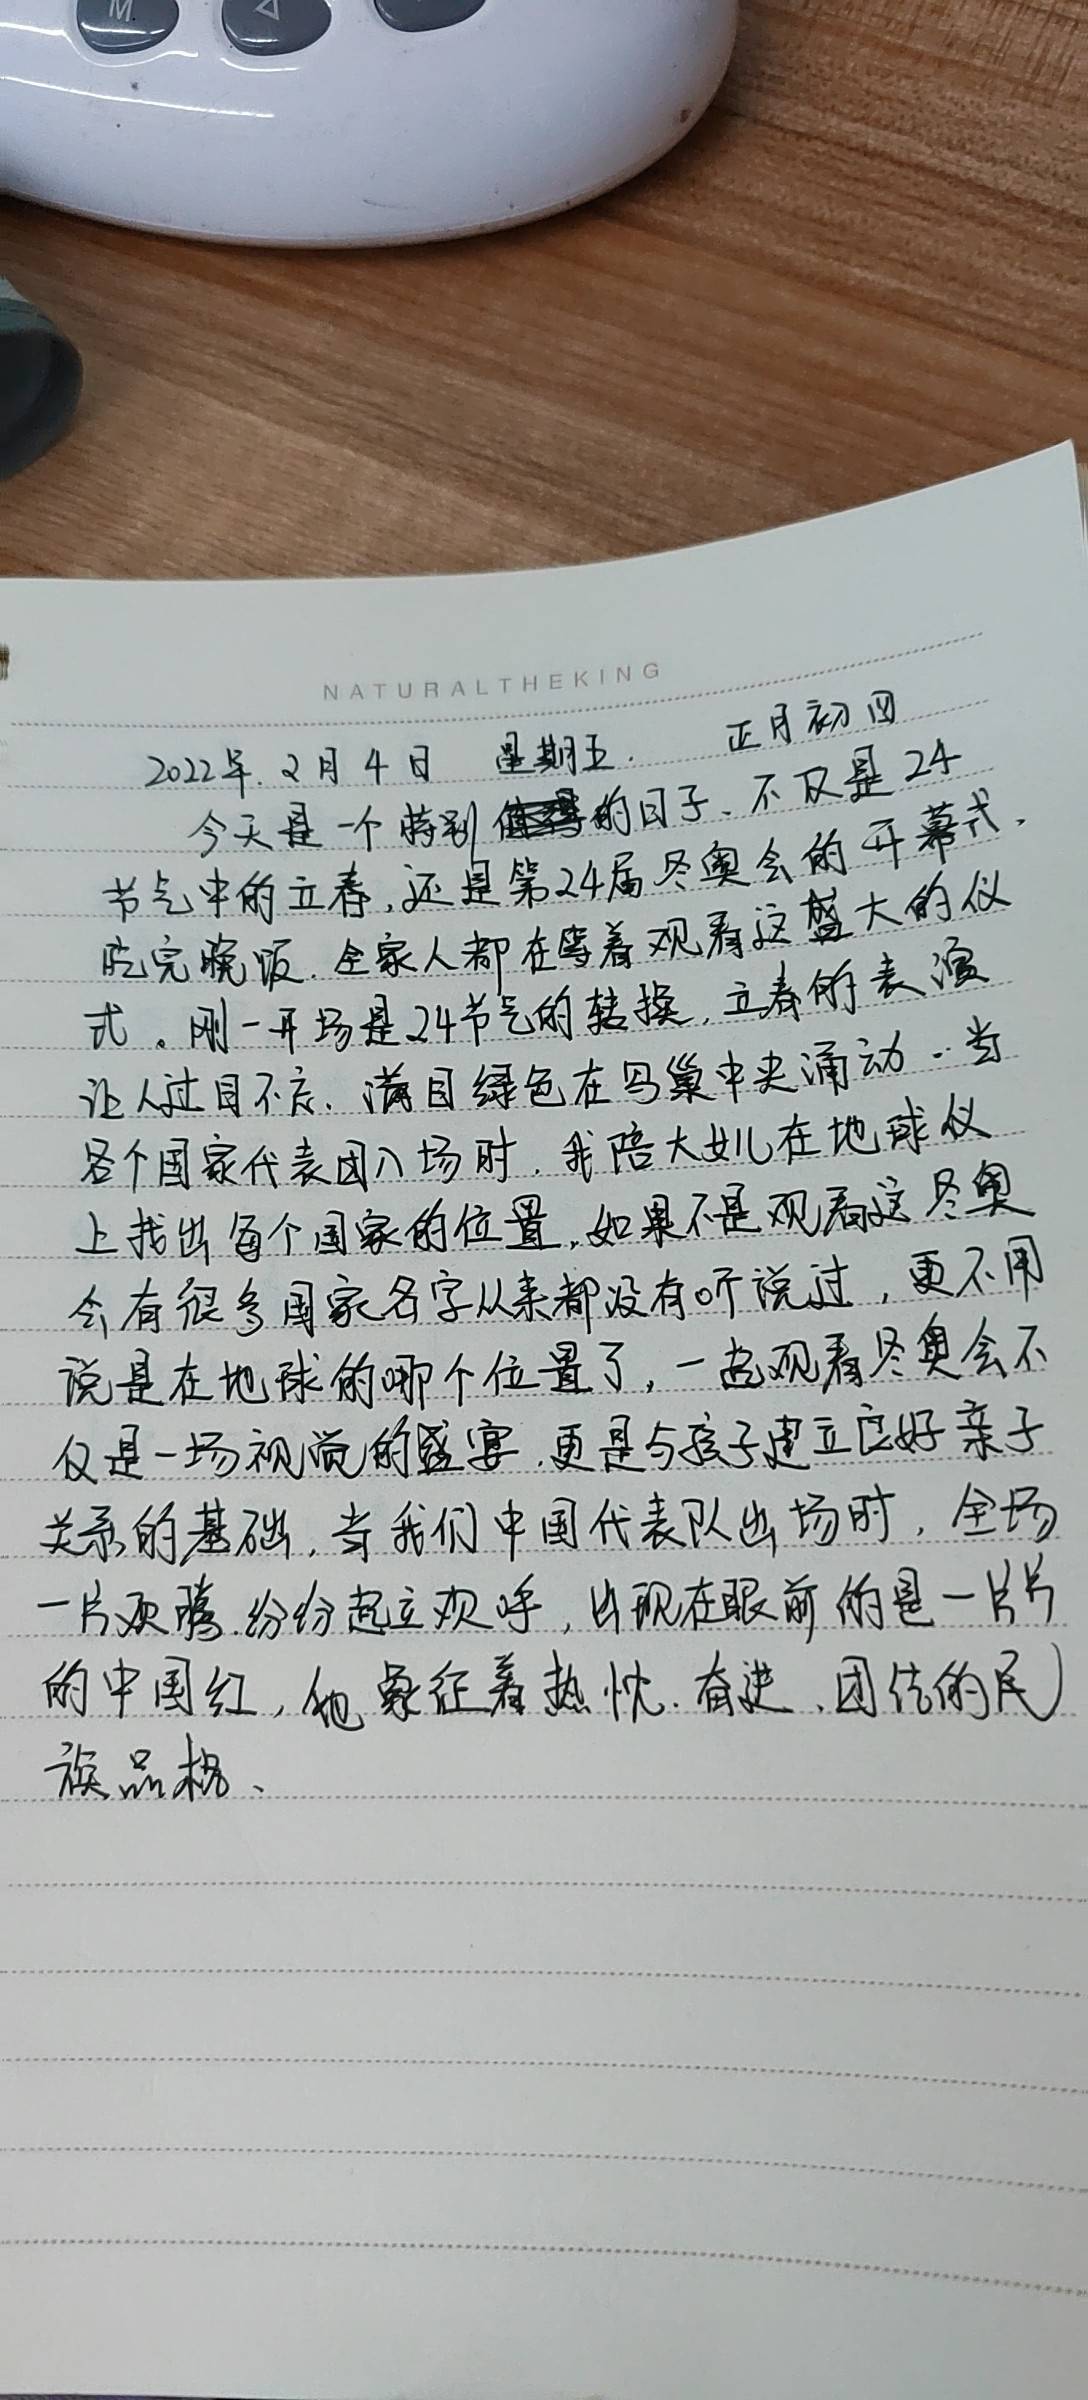 M
NATURALTHEKING
2022年.2月4日 星期五. 正月初四
今天是一个特别的日子、不仅是24
节气中的立春,还是第24届冬奥会的开幕式.
吃完晚饭.全家人都在等着观看这盛大的仪
式。刚一开场是24节气的转换,立春的表演
让人过目不忘、满目绿色在鸟巢中央涌动..当
各个国家代表团入场时.我陪大女儿在地球仪
上找出每个国家的位置,如果不是观看这冬奥
会有很多国家名字从来都没有听说过,更不用
说是在地球的哪个位置了,一起观看冬奥会不
仅是一场视觉的盛宴.更是与孩子建立良好亲子
关系的基础,当我们中国代表队出场时,全场
一片欢腾.纷纷起立欢呼,出现在眼前的是一片片
的中国红,他象征着热忱.奋进、团结的民
族品格、